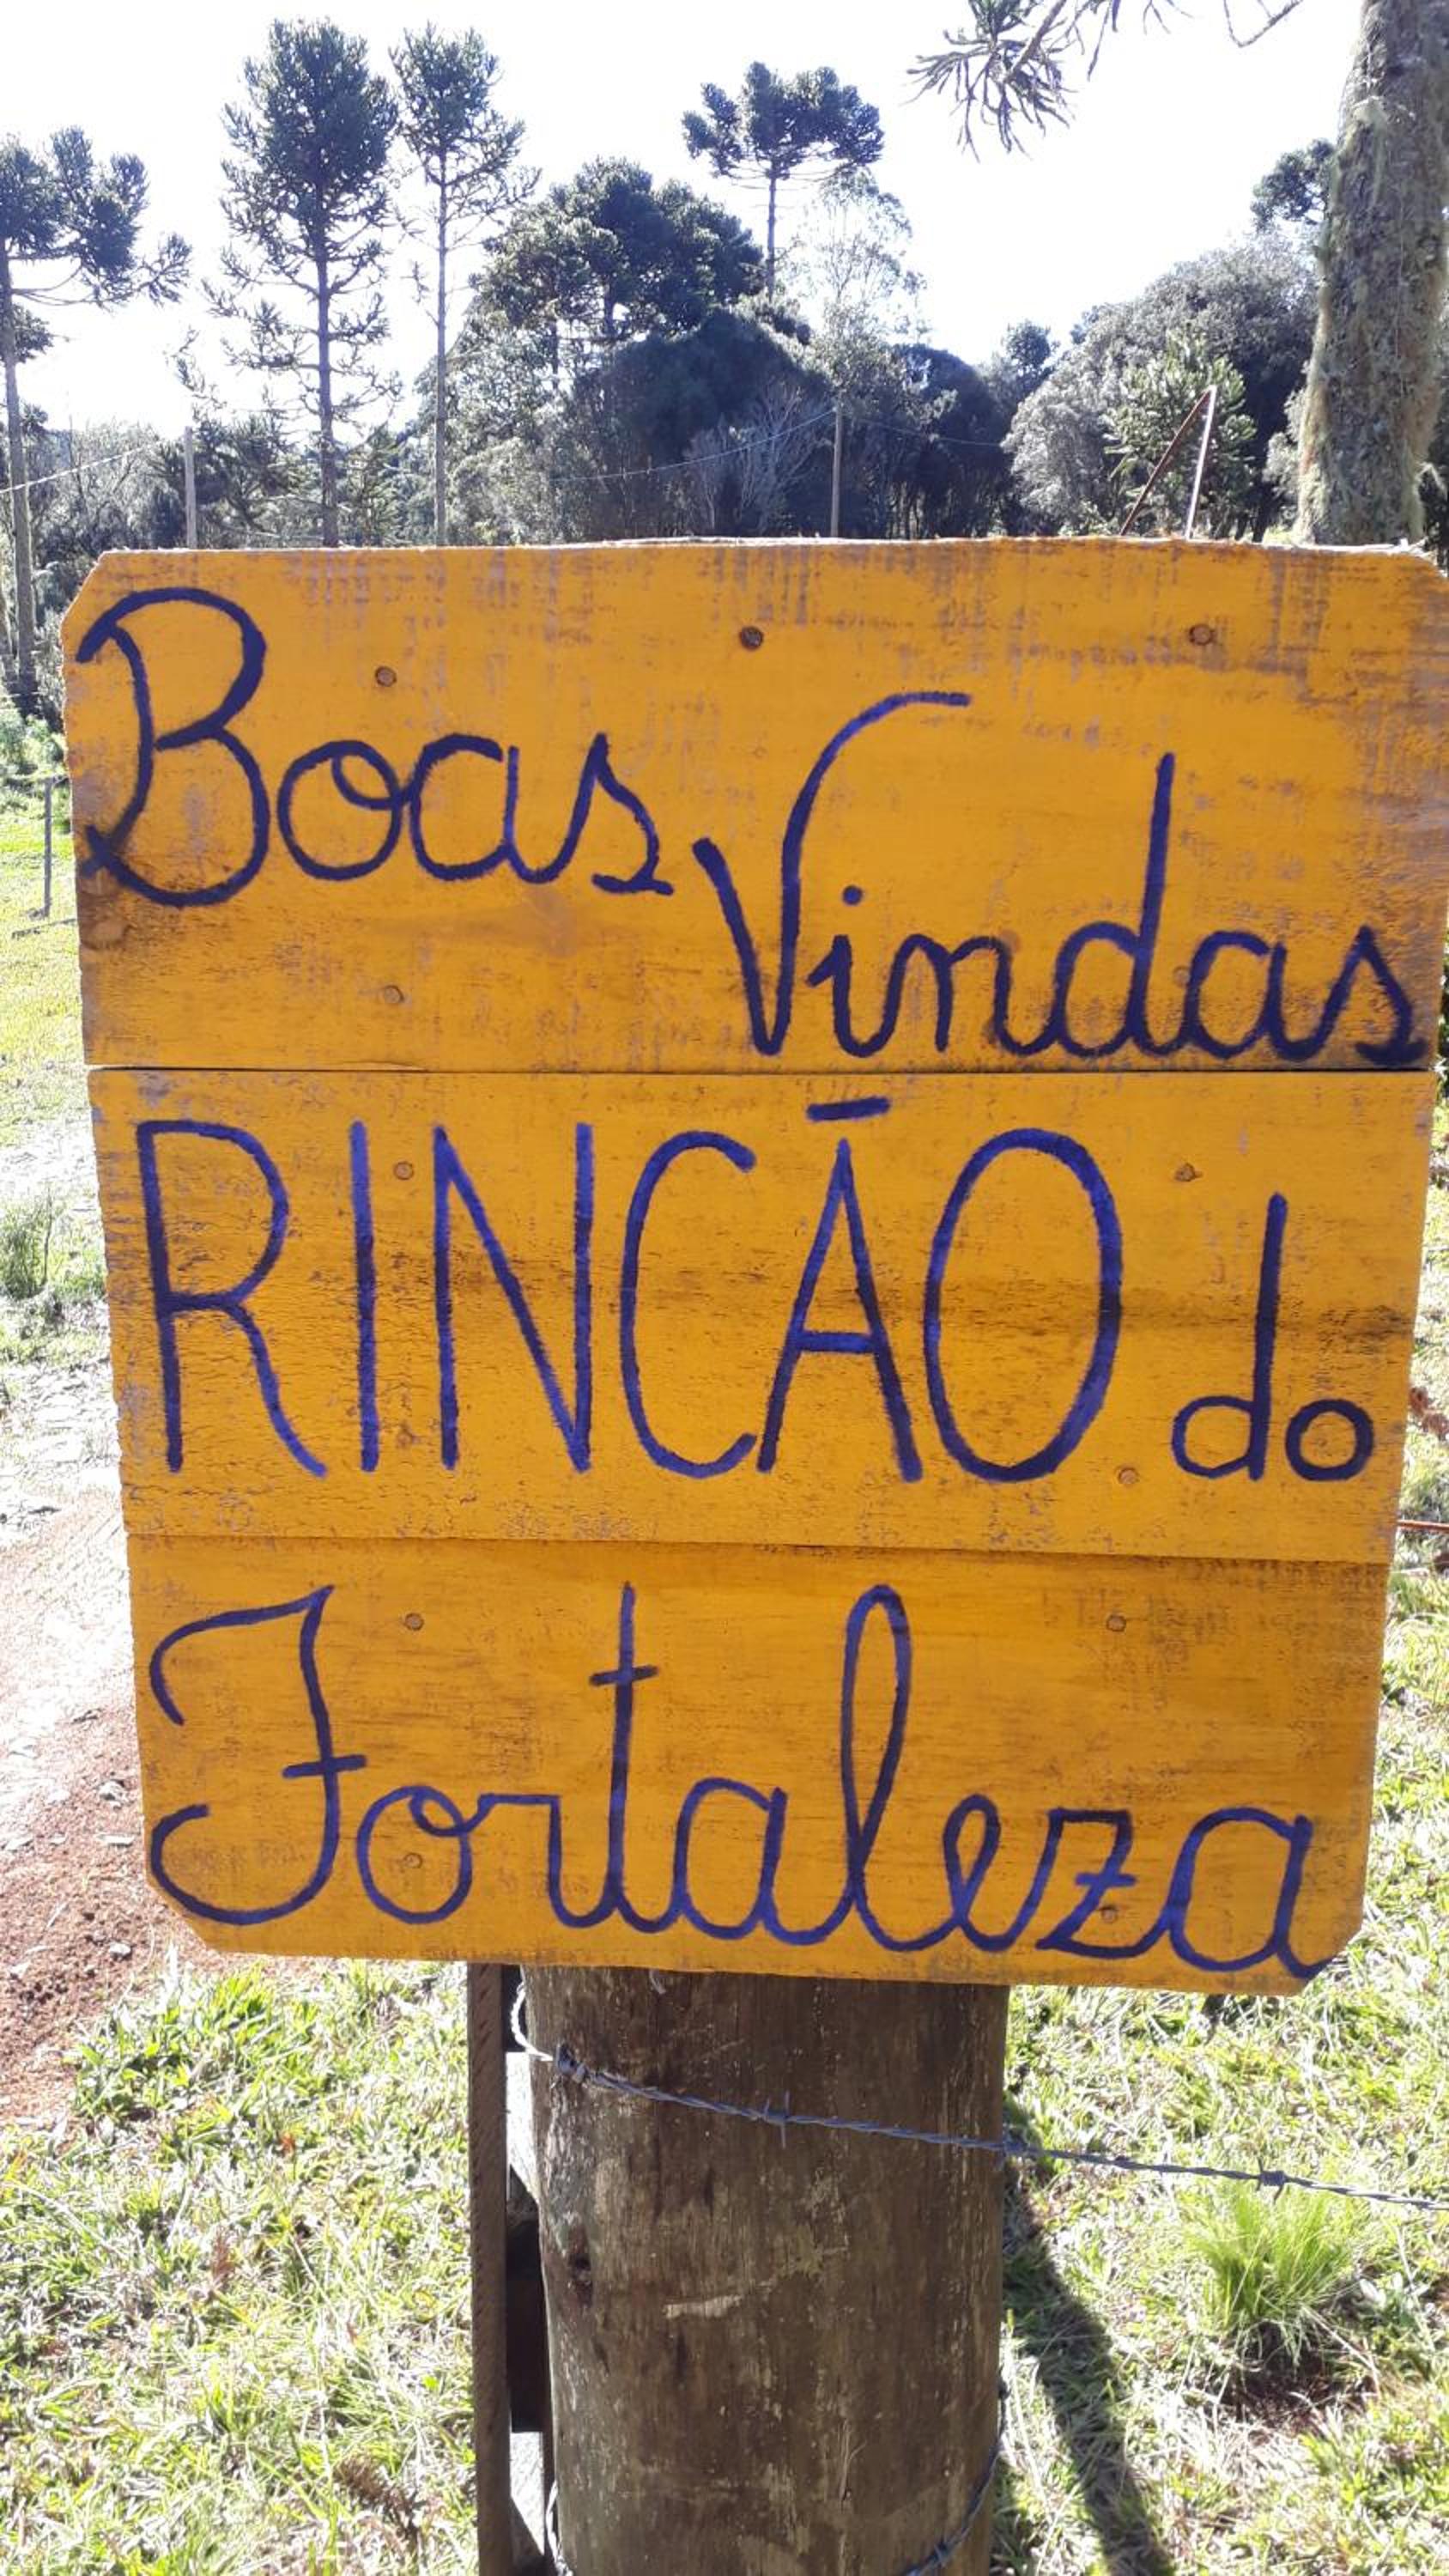 Boas Vindas
RINCÃO do
Fortaleza